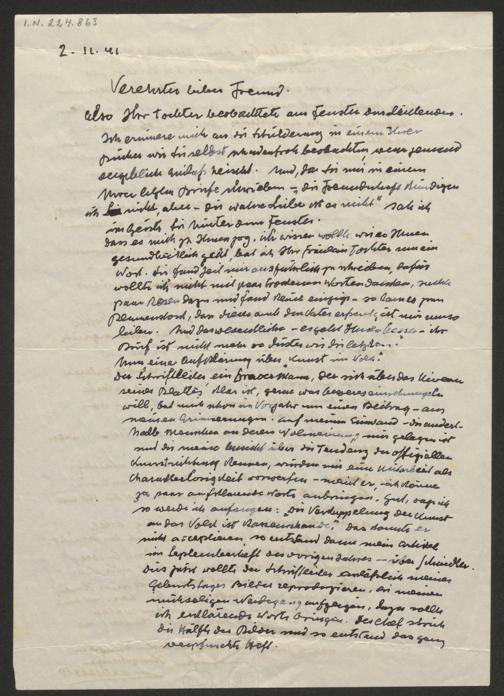 I.N. 224.863
2. 11. 41
Verehrter lieber Freund.
also Ihre Tochter beobachtete am Fenster den Leidenden.
Ich erinnere mich an die Schilderung in einem Ihrer
Bücher wie Sie selbst schadenfroh beobachten, wenn jemand
vergeblich Einlass heischt. Und, da Sie mir in einem
Ihrer letzten Briefe schrieben "die Freundschaft kündigen
ich Sie nicht, aber – die wahre Liebe ist es nicht" sah ich
im Geiste Sie hinter dem Fenster.
dass es mich zu Ihnen zog, ich wissen wollte wie es Ihnen
gesundheitlich geht, bat ich Ihr Fräulein Tochter um ein
Wort. Sie fand Zeit mir ausführlich zu schreiben, dafür
wollte ich nicht mit paar trockenen Worten danken, suchte
paar Rosen dazu und fand keine einzige – so kam es zum
Blumenstock, dass dieser auch den Vater erfreute, ist mir umso
lieber. Und das wesentliche – es geht Ihnen besser – ihr
Brief ist nicht mehr so düster wie die letzten.
Nun eine Aufklärung über "Kunst im Volk."
Der Schriftleiter ein braver Mann, der sich über das Niveau
seines Blattes klar ist, gerne was besseres
will, bat mich schon im Vorjahr um einen Beitrag – aus
meinen Erinnerungen. Auf meinen Einwand – die anderthalb
Menschen an deren Wohlmeinung mir gelegen ist
und die meine Ansicht über die Tendenz der offiziellen
Kunstrichtung kennen, würden mir eine Mitarbeit als
Charakterlosigkeit vorwerfen – meint er, ich könne
ja paar aufklärende Worte anbringen. Gut, sage ich
so werde ich anfangen: "Die Verkuppelung der Kunst
an das Volk ist Rassenschande", das konnte er
nicht acceptieren, so entstand dann mein Artikel
im Septemberheft des vorigen Jahres – über Schindler.
Dies Jahr wollte der Schriftleiter anlässlich meines
Geburtstages Bilder reproduzieren, die meinen
mühseligen Werdegang aufzeigen, dazu sollte
ich erklärende Worte bringen. Der Chef strich
die Hälfte der Bilder und so entstand das ganz
verpfuschte Heft.